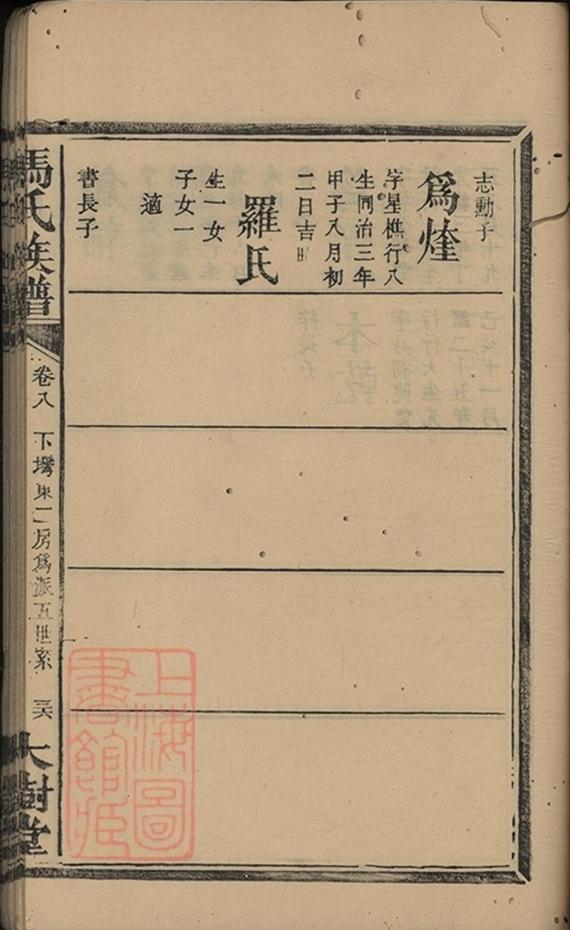 志勳子
為煃
字星樵行八
生同治三年
甲子八月初
二日吉時
羅氏
生一女
子女一
適
書長子
馬氏族譜
卷八 下塆東二房為派五世系 三六
大樹堂
上海圖
書館藏